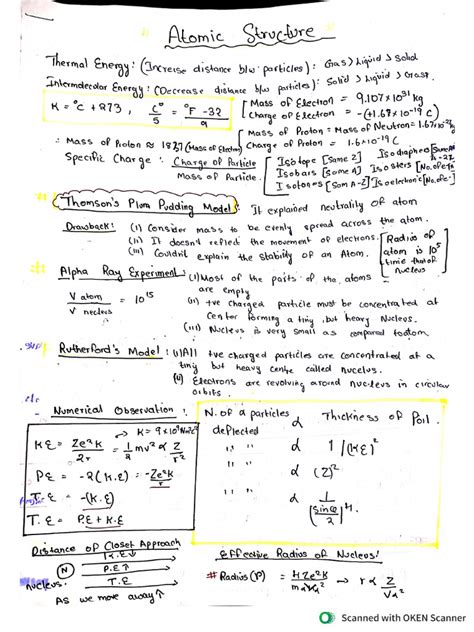 Atomic Structure
Thermal Energy: (Increise distance b/w particles): Gas > Liquid > Solid
Intermolecular Energy: (Decrease distance b/w particles): Solid > Liquid > Gas.
K = °C + 273, C°/5 = °F - 32/9
[Mass of Electron = 9.107x10³¹ kg
Charge of Electron = -(+1.69x10⁻¹⁹ C)
∴ Mass of Proton ≈ 1837 (Mass of Electron)
[Mass of Proton = Mass of Neutron = 1.67x10⁻²⁷ kg
Charge of Proton = 1.6x10⁻¹⁹ C
Specific Charge: Charge of Particle / Mass of Particle.
[Isotope [Same Z]
Isobars [Same A]
Isotones [Sam A-Z]
Isosters [No. of
Isoelectronic [No. of e⁻]
Thomson's Plum Pudding Model: It explained neutrality of atom
Drawback: (i) Consider mass to be evenly spread across the atom.
(ii) It doesn't reflect the movement of electrons.
(iii) Couldn't explain the stability of an Atom.
[Radius of
atom is 10⁵
time that of
nucleus]
Alpha Ray Experiment: (i) Most of the parts of the atoms
are empty
V atom / V necleus = 10¹⁵
(ii) +ve charged particle must be concentrated at
center forming a tiny, but heavy Nucleus.
(iii) Nucleus is very small as compared
Rutherford's Model: (i) All +ve charged particles are concentrated at a
tiny but heavy centre called nucelus.
(ii) Electrons are revolving around nucleus in circular
orbits.
Numerical Observation:
→ K = 9 x 10⁹ Nm²/C²
K.E = Ze²K/2r = 1/2 mv² α Z/r²
P.E = -2(K.E) = -Ze²K/r
T.E = -(K.E)
T.E = P.E + K.E
N. of α particles deflected α Thickness of Foil.
" " " α 1/(KE)²
" " " α (Z)²
" " " α 1/[sinθ/2]⁴
Distance of Closet Approach
K.E↓
P.E↑
T.E
N
nucleus.
As we move away↑
Effective Radius of Nucleus:
# Radius(r) = 4Ze²K/mαVα² → r α Z/Vα²
Scanned with OKEN Scanner